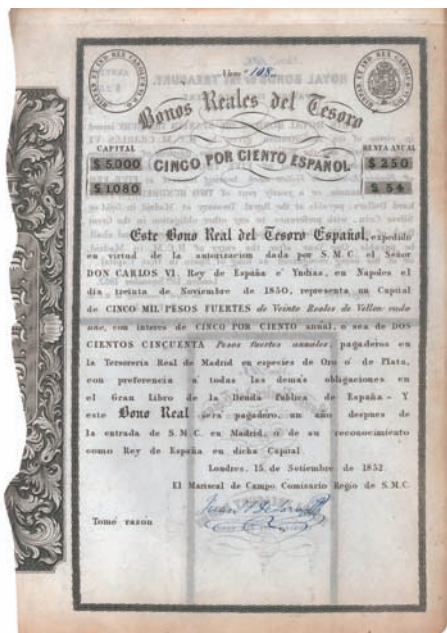 Núm.º 108.
Bonos Reales del Tesoro
CAPITAL
RENTA ANUAL
$ 5.000
CINCO POR CIENTO ESPAÑOL
$ 250
$ 1.080
$ 54
Este Bono Real del Tesoro Español, expedido
en virtud de la autorizacion dada por S.M.C. el Señor
DON CARLOS VI, Rey de España e' Yndias, en Naples el
dia treinta de Noviembre de 1850, representa un Capital
de CINCO MIL PESOS FUERTES de Veinte Reales de Vellon cada
uno, con interes de CINCO POR CIENTO anual, o sea de DOS
CIENTOS CINCUENTA Pesos fuertes anuales, pagaderos en
la Tesoreria Real de Madrid en especies de Oro o' de Plata,
con preferencia a' todas las demás obligaciones en
el Gran Libro de la Deuda Publica de España - Y
este Bono Real será pagadero, un año despues de
la entrada de S.M.C. en Madrid, o' de su reconocimiento
como Rey de España en dicha Capital
Londres, 15, de Setiembre de 1852
El Mariscal de Campo, Comisario Regio de S.M.C.
Tomé razón